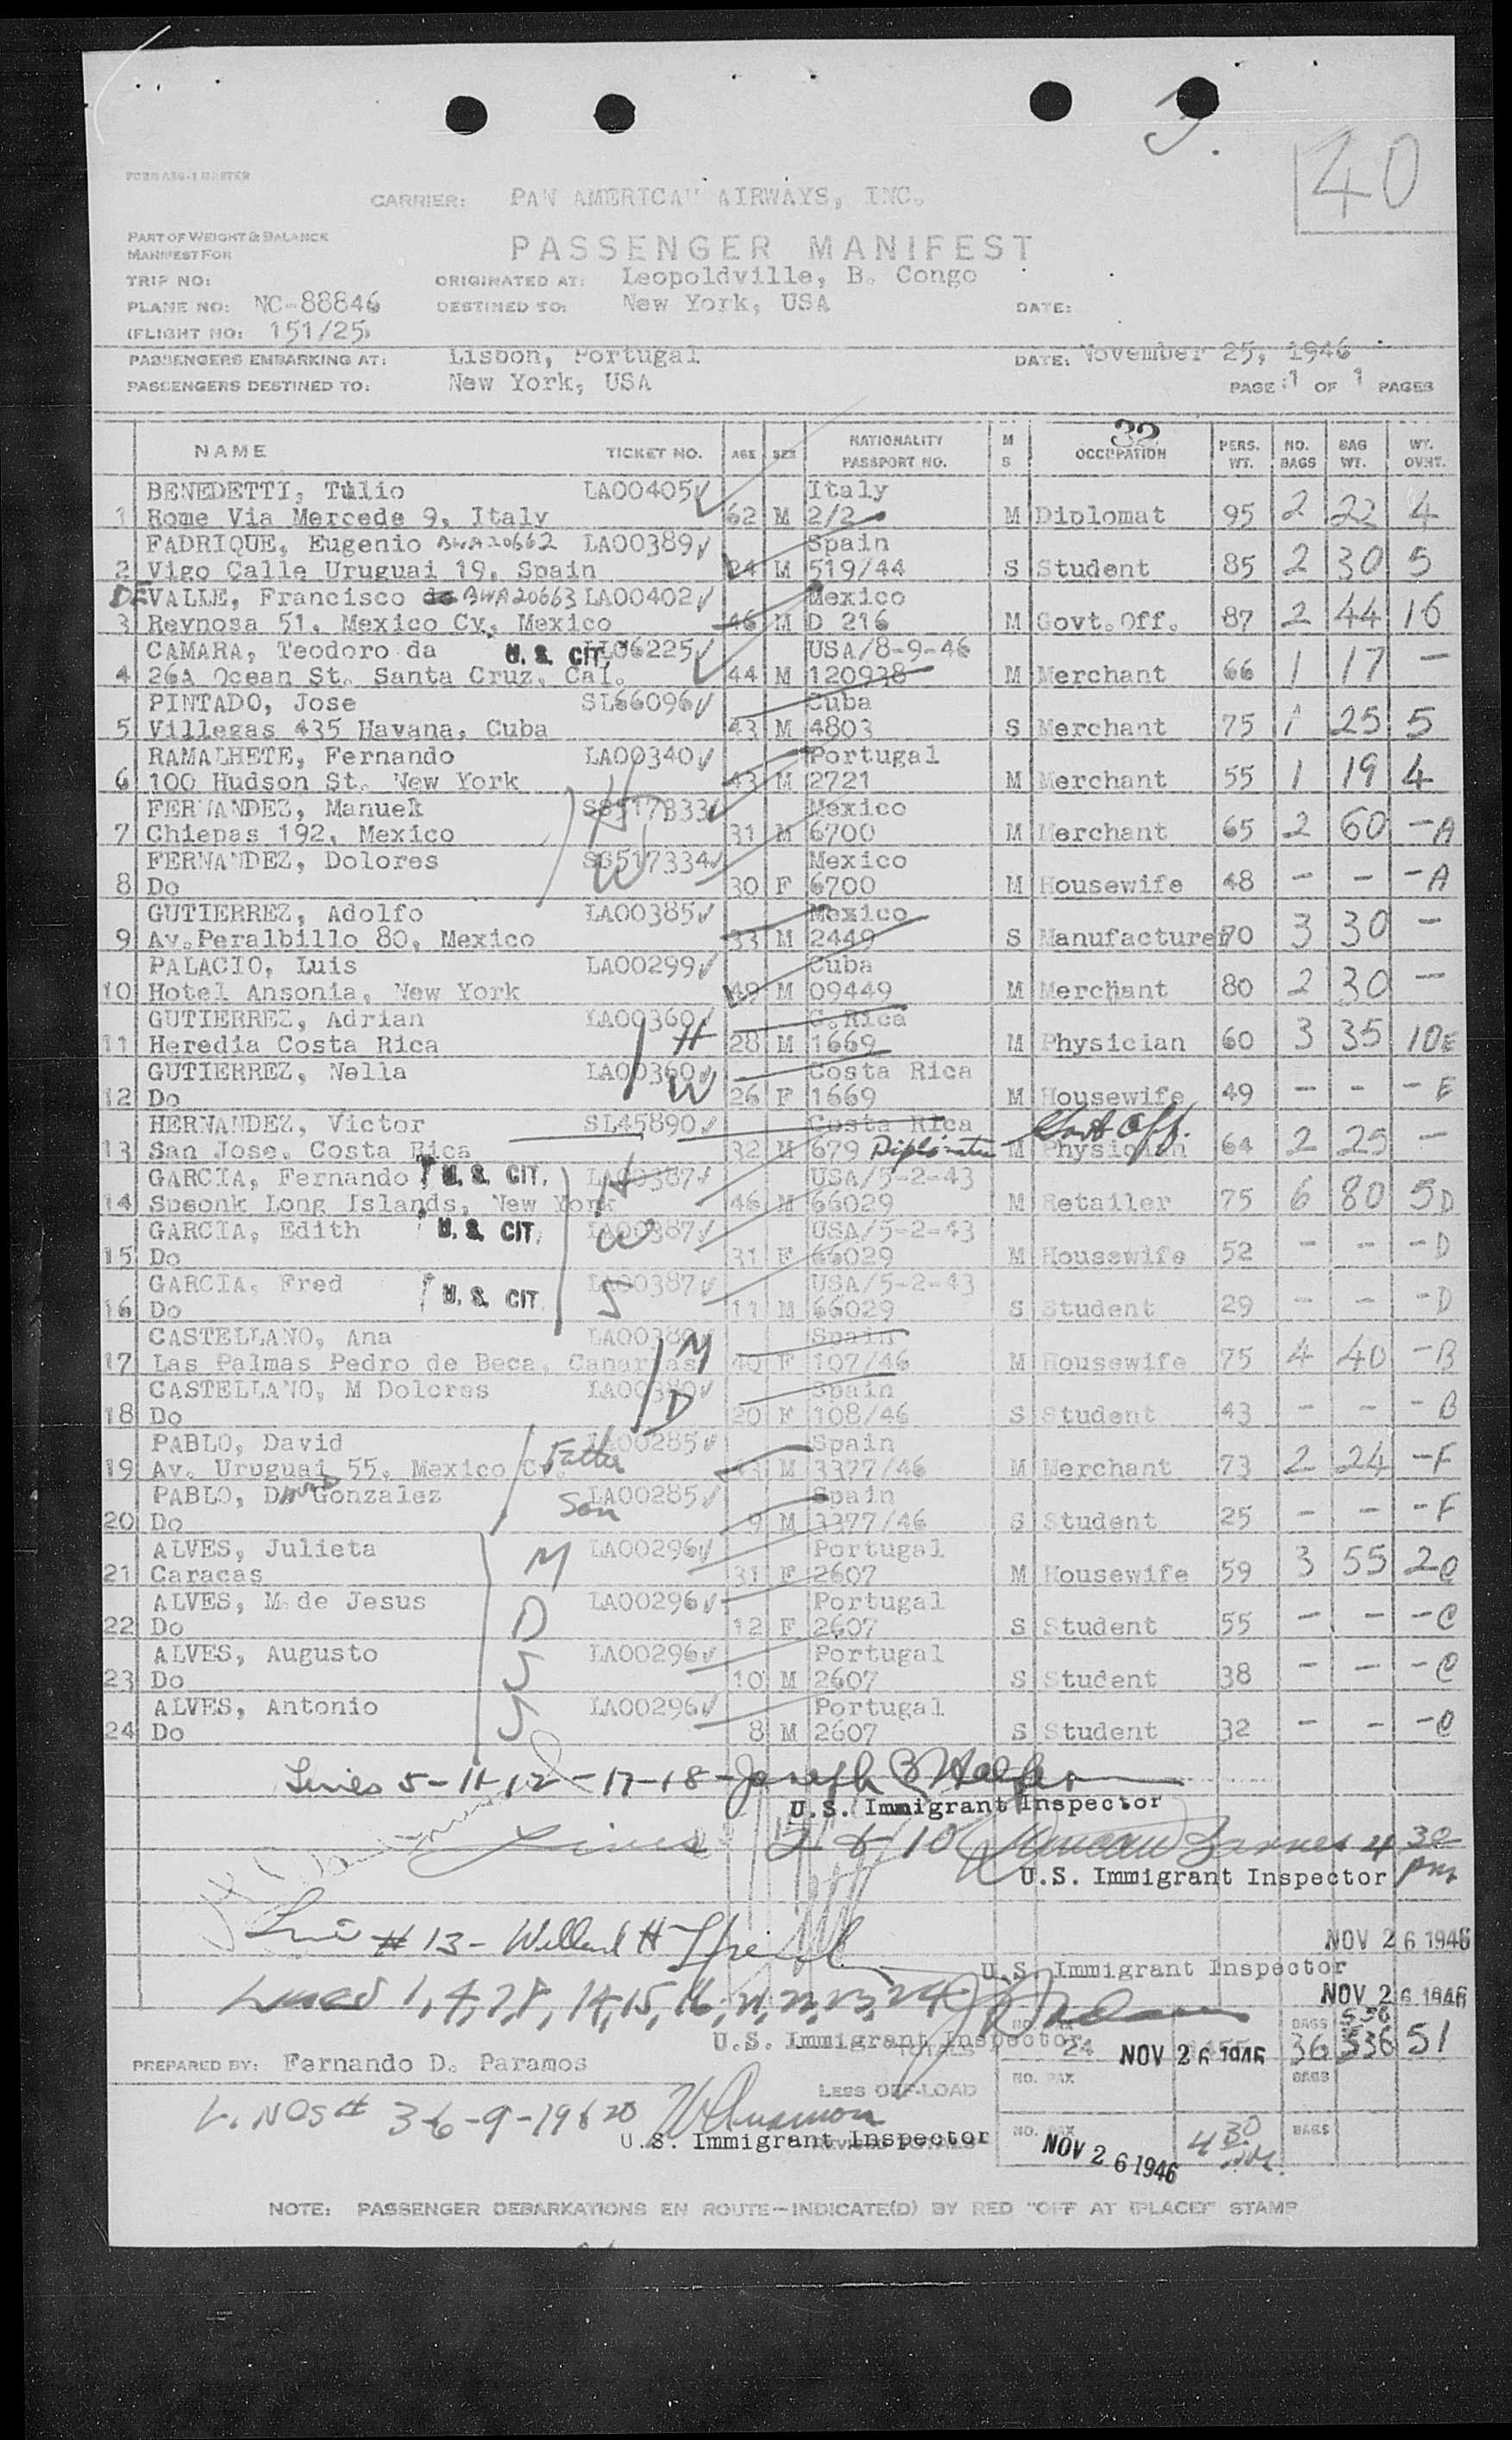 3.
40
FORM ABG-1 MASTER
CARRIER: PAN AMERICAN AIRWAYS, INC.
PART OF WEIGHT & BALANCE
MANIFEST FOR
PASSENGER MANIFEST
TRIP NO: ORIGINATED AT: Leopoldville, B. Congo
PLANE NO: NC-88846 DESTINED TO: New York, USA DATE:
(FLIGHT NO: 151/25)
PASSENGERS EMBARKING AT: Lisbon, Portugal DATE: November 25, 1946
PASSENGERS DESTINED TO: New York, USA PAGE: 1 OF 1 PAGES
32
NAME TICKET NO. AGE SEX NATIONALITY PASSPORT NO. M S OCCUPATION PERS. WT. NO. BAGS BAG WT. WT. OVHT.
BENEDETTI, Tulio LA00405 Italy
1 Rome Via Mercede 9, Italy 62 M 2/2 M Diplomat 95 2 22 4
FADRIQUE, Eugenio BWA20662 LA00389 Spain
2 Vigo Calle Uruguai 19, Spain 24 M 519/44 S Student 85 2 30 5
DE VALLE, Francisco de BWA20663 LA00402 Mexico
3 Reynosa 51, Mexico Cy, Mexico 46 M D 216 M Govt.Off. 87 2 44 16
CAMARA, Teodoro da U. S. CIT. 06225 USA/8-9-46
4 26A Ocean St. Santa Cruz, Cal. 44 M 120938 M Merchant 66 1 17 -
PINTADO, Jose SL66096 Cuba
5 Villegas 435 Havana, Cuba 43 M 4803 S Merchant 75 1 25 5
RAMALHETE, Fernando LA00340 Portugal
6 100 Hudson St. New York 43 M 2721 M Merchant 55 1 19 4
FERNANDEZ, Manuel H SG517333 Mexico
7 Chiepas 192, Mexico 31 M 6700 M Merchant 65 2 60 - A
FERNANDEZ, Dolores W SG517334 Mexico
8 Do 30 F 6700 M Housewife 48 - - - A
GUTIERREZ, Adolfo LA00385 Mexico
9 Av.Peralbillo 80, Mexico 33 M 2449 S Manufacturer 70 3 30 -
PALACIO, Luis LA00299 Cuba
10 Hotel Ansonia, New York 49 M 09449 M Merchant 80 2 30 -
GUTIERREZ, Adrian LA00360 H C.Rica
11 Heredia Costa Rica 28 M 1669 M Physician 60 3 35 10E
GUTIERREZ, Nella LA00360 W Costa Rica
12 Do 26 F 1669 M Housewife 49 - - - E
HERNANDEZ, Victor SL45890 Costa Rica Govt Off.
13 San Jose, Costa Rica 32 M 679 Diplomatic M Physician 64 2 25 -
GARCIA, Fernando U. S. CIT. LA00387 H USA/5-2-43
14 Speonk Long Islands, New York 46 M 66029 M Retailer 75 6 80 5D
GARCIA, Edith U. S. CIT. LA00387 W USA/5-2-43
15 Do 31 F 66029 M Housewife 52 - - - D
GARCIA, Fred U. S. CIT. LA00387 S USA/5-2-43
16 Do 11 M 66029 S Student 29 - - - D
CASTELLANO, Ana LA00380 M Spain
17 Las Palmas Pedro de Beca, Canarias 40 F 107/46 M Housewife 75 4 40 - B
CASTELLANO, M Dolores LA00380 D Spain
18 Do 20 F 108/46 S Student 43 - - - B
PABLO, David Father LA00285 Spain
19 Av. Uruguai 55, Mexico Cy. 43 M 3377/46 M Merchant 73 2 24 - F
PABLO, David Gonzalez Son LA00285 Spain
20 Do 9 M 3377/46 S Student 25 - - - F
ALVES, Julieta M LA00296 Portugal
21 Caracas 31 F 2607 M Housewife 59 3 55 2C
ALVES, M de Jesus D LA00296 Portugal
22 Do 12 F 2607 S Student 55 - - - C
ALVES, Augusto S LA00296 Portugal
23 Do 10 M 2607 S Student 38 - - - C
ALVES, Antonio S LA00296 Portugal
24 Do 8 M 2607 S Student 32 - - - C
Lines 5-11-12-17-18- Joseph B
U.S. Immigrant Inspector
Lines 2 & 10 Duncan Barnes 4 30 pm
U.S. Immigrant Inspector
Line # 13- Willard H
NOV 26 1946
U.S. Immigrant Inspector
Lines 1, 4, 7, 8, 14, 15, 16, 21, 22, 23, 24
NOV 26 1946
U.S. Immigrant Inspector
NO. PAX 24 1455 BAGS 36 536 51
NOV 26 1946
PREPARED BY: Fernando D. Paramos
LESS OFF-LOAD NO. PAX BAGS
L. NOS # 3-6-9-19 & 20
U.S. Immigrant Inspector
NO. PAX BAGS
NOV 26 1946 4 30
NOTE: PASSENGER DEBARKATIONS EN ROUTE—INDICATE(D) BY RED "OFF AT (PLACE)" STAMP